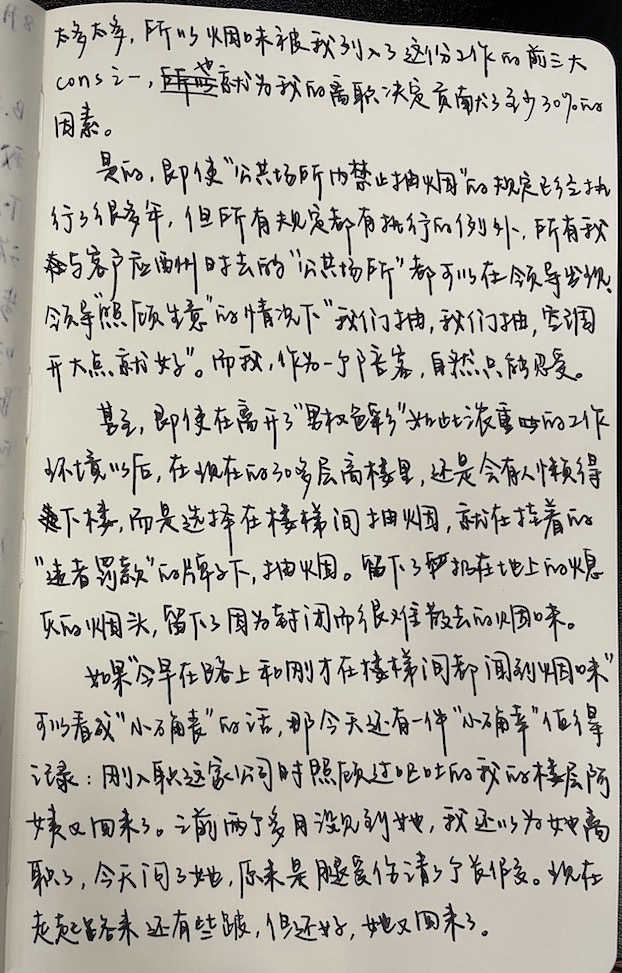 太多太多，所以烟味被我列入了这份工作的前三大
cons之一，也就为我的离职决定贡献了至少30%的
因素。
是的，即使"公共场所内禁止抽烟"的规定已经执
行了很多年，但所有规定都有执行的例外，所有我
与客户应酬时去的"公共场所"都可以在领导发现、
领导"照顾生意"的情况下"我们抽，我们抽，空调
开大点就好"。而我，作为一个陪客，自然只能忍受。
甚至，即使在离开了"男权色彩"如此浓重的工作
环境以后，在现在的30多层高楼里，还是会有人懒得
下楼，而是选择在楼梯间抽烟，就在挂着的
"违者罚款"的牌子下，抽烟。留下了扔在地上的熄
灭的烟头，留下了因为封闭而很难散去的烟味。
如果"今早在路上和刚才在楼梯间都闻到烟味"
可以看成"小确丧"的话，那今天还有一件"小确幸"值得
记录：刚入职这家公司时照顾过呕吐的我的楼层阿
姨又回来了。之前两个多月没见到她，我还以为她离
职了，今天问了她，原来是腿受伤请了个长假。现在
走起路来还有些跛，但还好，她又回来了。